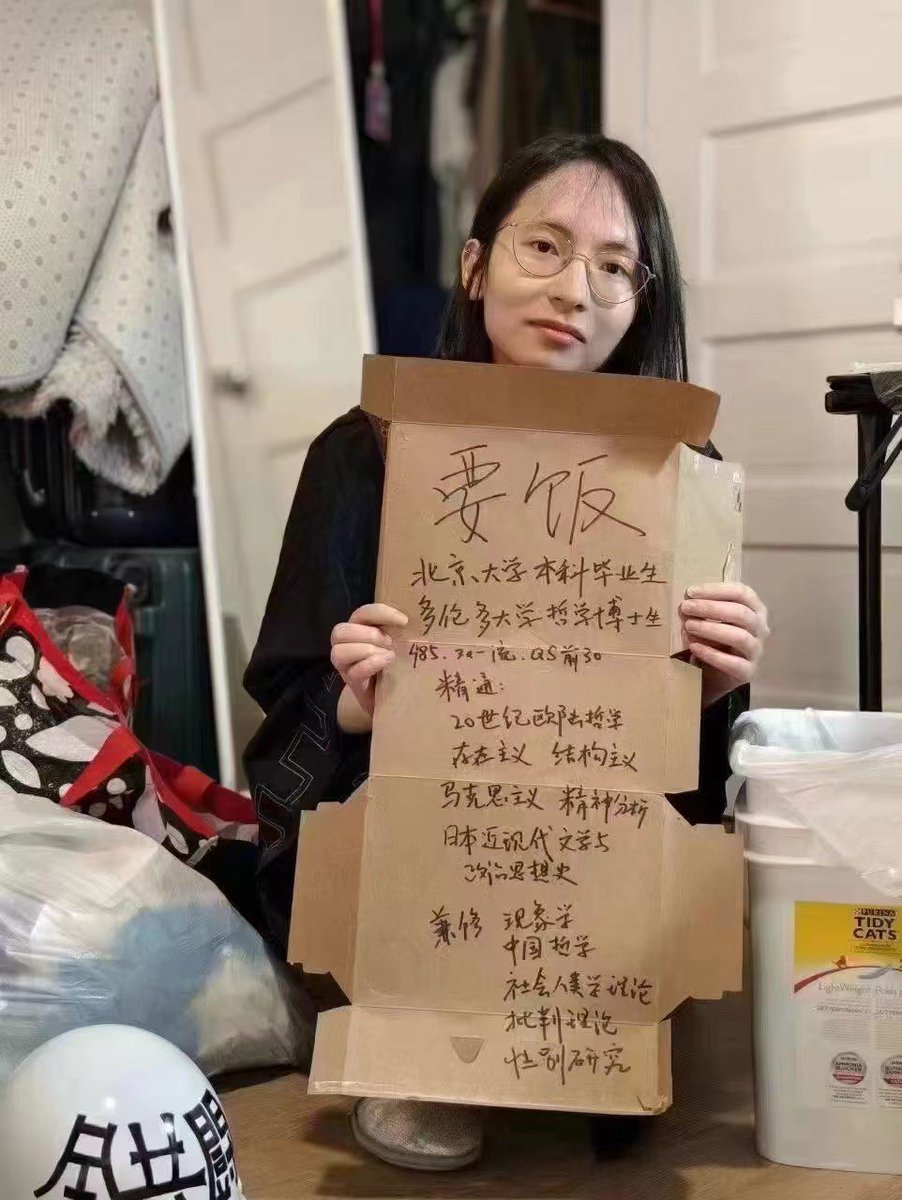 要饭
北京大学本科毕业生
多伦多大学哲学博士生
985.双一流.QS前30
精通:
20世纪欧陆哲学
存在主义 结构主义
马克思主义 精神分析
日本近现代文学与
政治思想史
兼修 现象学
中国哲学
社会人类学理论
批判理论
性别研究
PURINA
TIDY
CATS
LightWeight